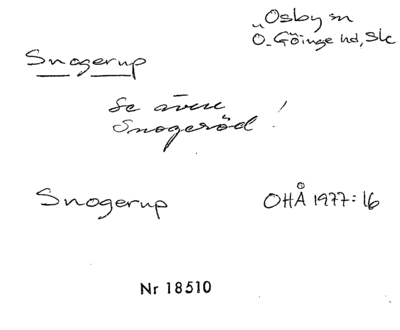 Osby sn
Ö. Göinge hd, Sk
Snogerup
Se även
Snogeröd!
Snogerup
OHÅ 1977:16
Nr 18510